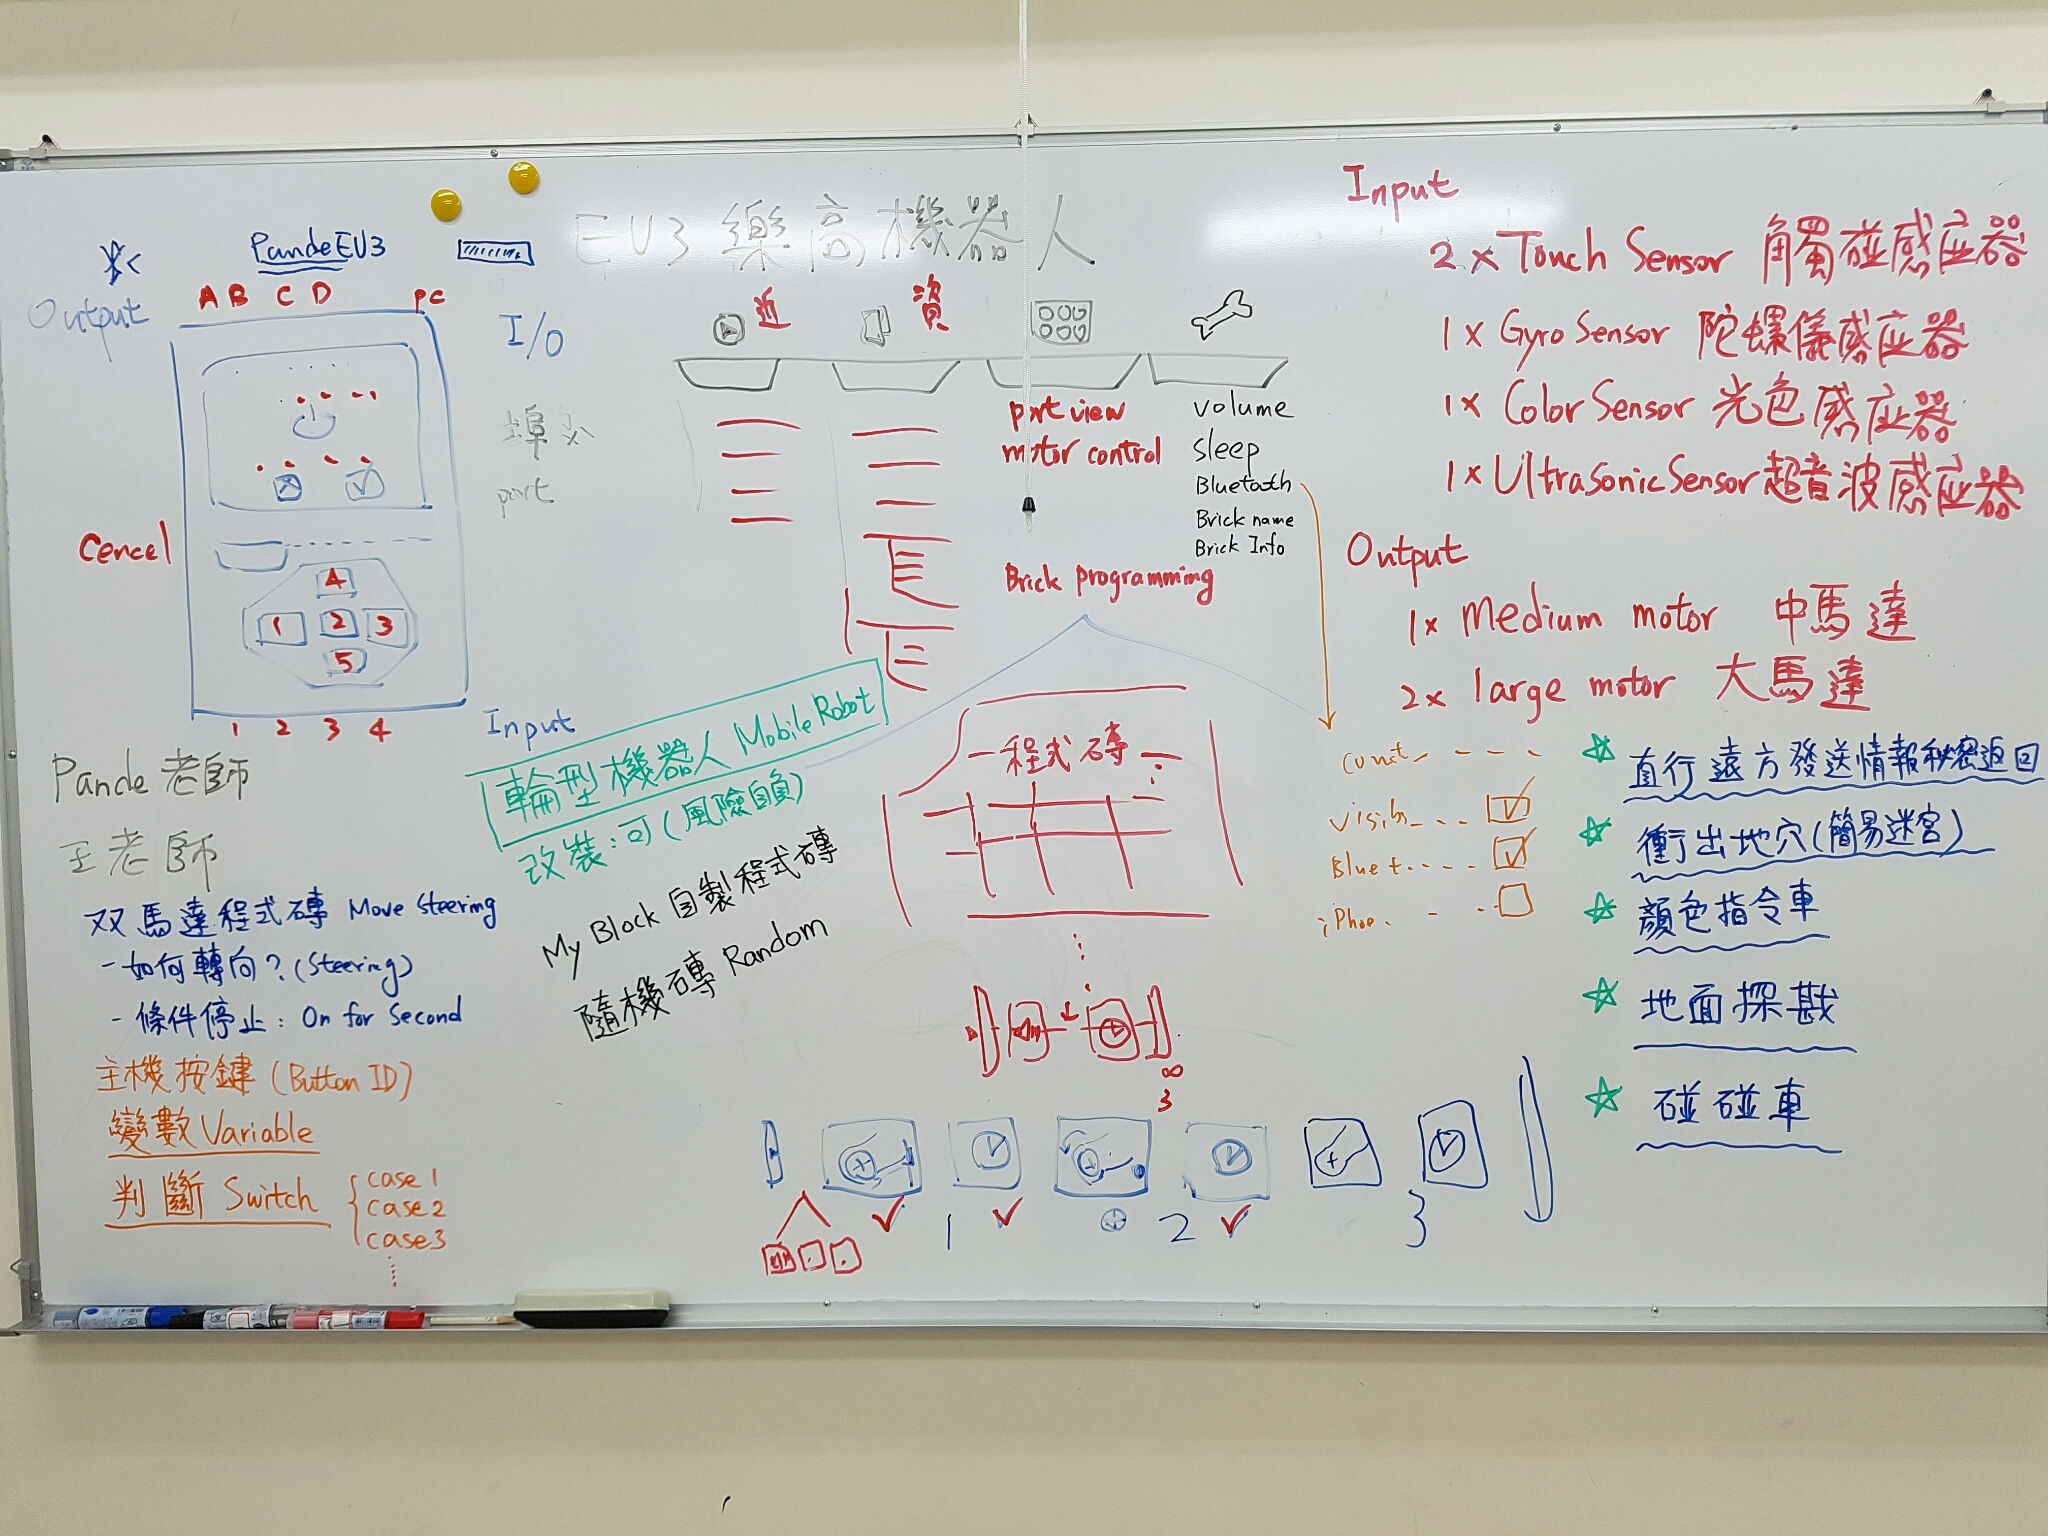 PandeEV3
EV3 樂高機器人
Output
A B C D
PC
I/O
埠
port
Cencel
4
1 2 3
5
1 2 3 4
Input
近
資
port view
motor control
Brick programming
volume
sleep
Bluetooth
Brick name
Brick Info
Input
2 x Touch Sensor 觸碰感应器
1 x Gyro Sensor 陀螺儀感应器
1 x Color Sensor 光色感应器
1 x UltraSonic Sensor 超音波感应器
Output
1 x Medium motor 中馬達
2 x large motor 大馬達
Pande 老師
王老師
双馬達程式磚 Move Steering
- 如何轉向?(Steering)
- 條件停止: On for Second
主機按鍵 (Button ID)
變數 Variable
判斷 Switch
case 1
case 2
case 3
輪型機器人 Mobile Robot
改裝:可(風險自負)
My Block 自製程式磚
隨機磚 Random
程式磚
∞
3
1 2 3
Visib
Bluet
iPhoe
直行遠方發送情報秘密返回
衝出地穴(簡易迷宮)
顏色指令車
地面探戡
碰碰車